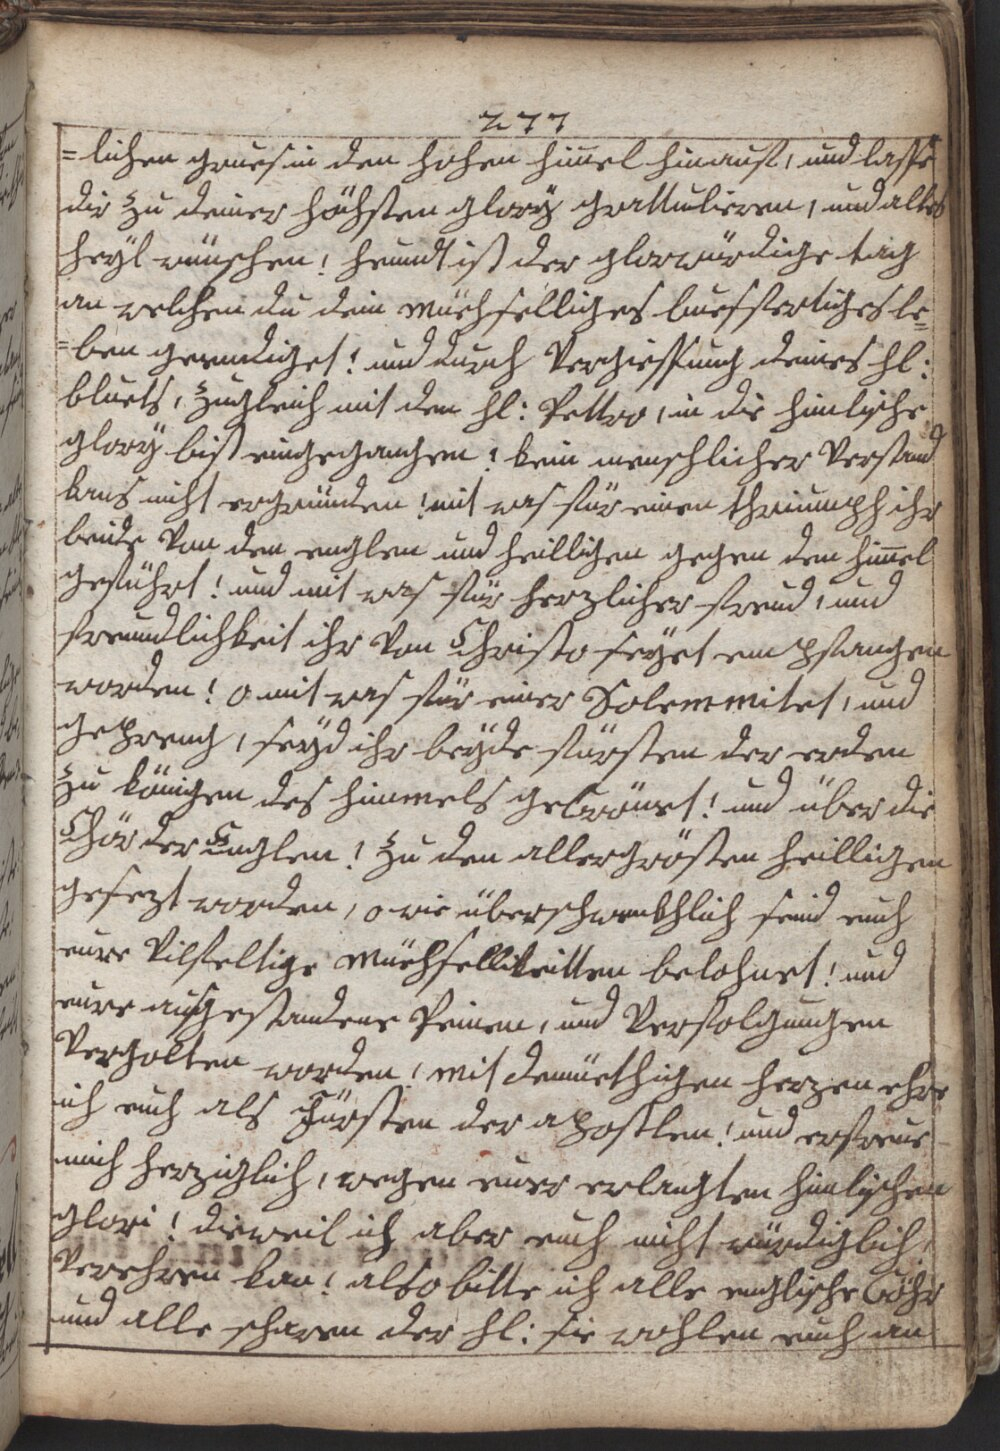 277
=lichen grues in den hohen him̄el hinauf, und lasse
dir zu deiner höchsten glory grattulieren, und alles
heyl wünschen! heundt ist der glorwürdige tag
an welchen du dein mühselliges buesfertiges le=
=ben geendiget! und durch vergiessung deines hl:
bluets, zugleich mit den hl: Pettro, in die himlische
glory bist eingegangen! kein menschlicher verstand
kans nicht ergründen! mit was für einen thriumph ihr
beide von den englen und heilligen gegen den him̄el
geführt! und mit was für herzlicher freud, und
freundlichkeit ihr von Christo seyet empfangen
worden! o mit was für einer Solemmitet, und
gepreng, seyd ihr beyde fürsten der erden
zu königen des himmels gecrönet! und über die
Chör der Englen! zu den allergrösten heilligen
gesezt worden, o wie überschwenkhlich seind euch
eure vilfeltige mühsellikeitten belohnet! und
eure ausgestandene Peinen, und verfolgungen
vergolten worden! mit demüethigen herzen ehre
ich euch als Fürsten der apostlen! und erfreue
mich herziglich, wegen eurer erlangten himlischen
glori! dieweil ich aber euch nicht würdiglich,
verehren kan! also bitte ich alle englische Cöhr
und alle scharen der hl: sie wohlen euch an